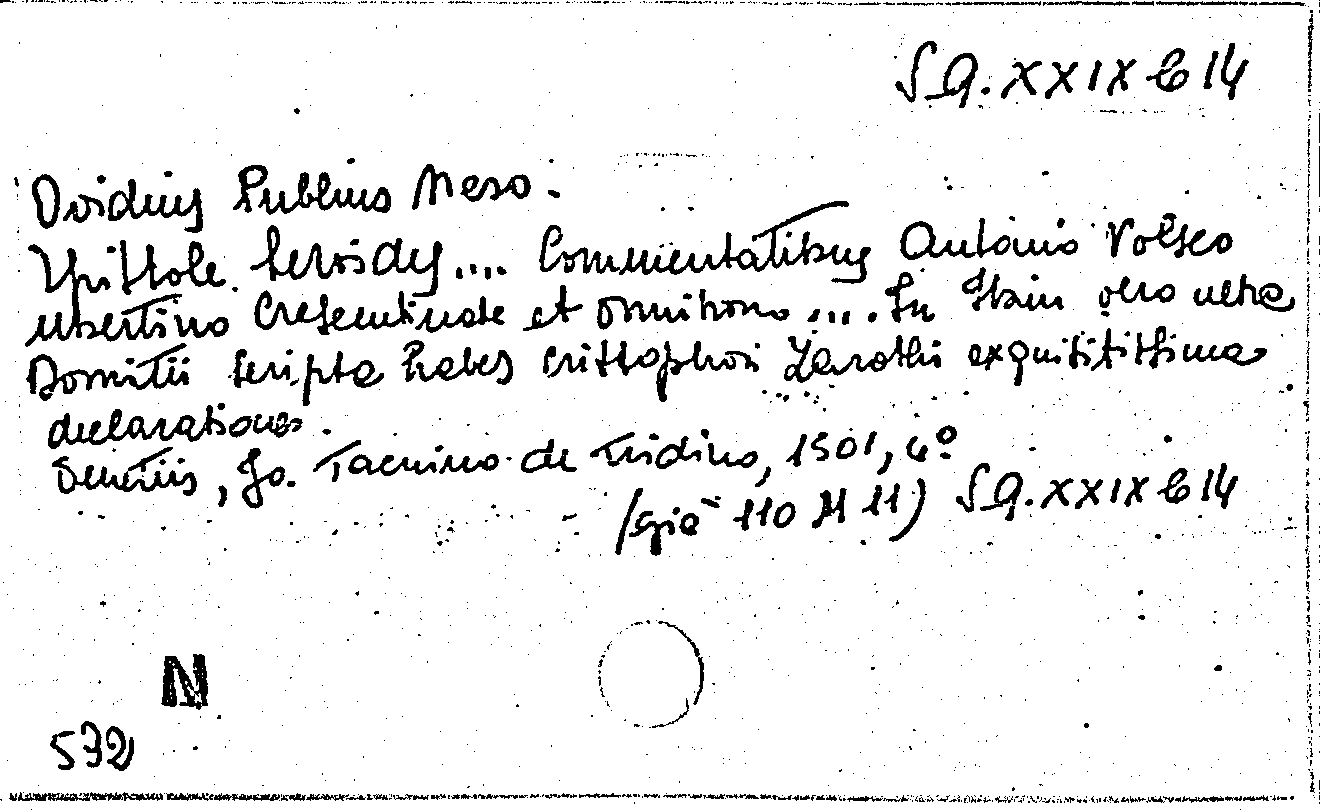 S.Q. XXIX C 14
Ovidius Publius Naso.
Epistole Heroides.... Commentatibus Antonio Volsco
Ubertino Crescentinate et Omnibono.... In Ibin vero ultra
Domitii scripta habes Cristophori Zarothi exquisitissima
declarationes.
Venetiis, Jo. Tacuino de Tridino, 1501, 4°
(già 110 M 11) S.Q. XXIX C 14
N
532